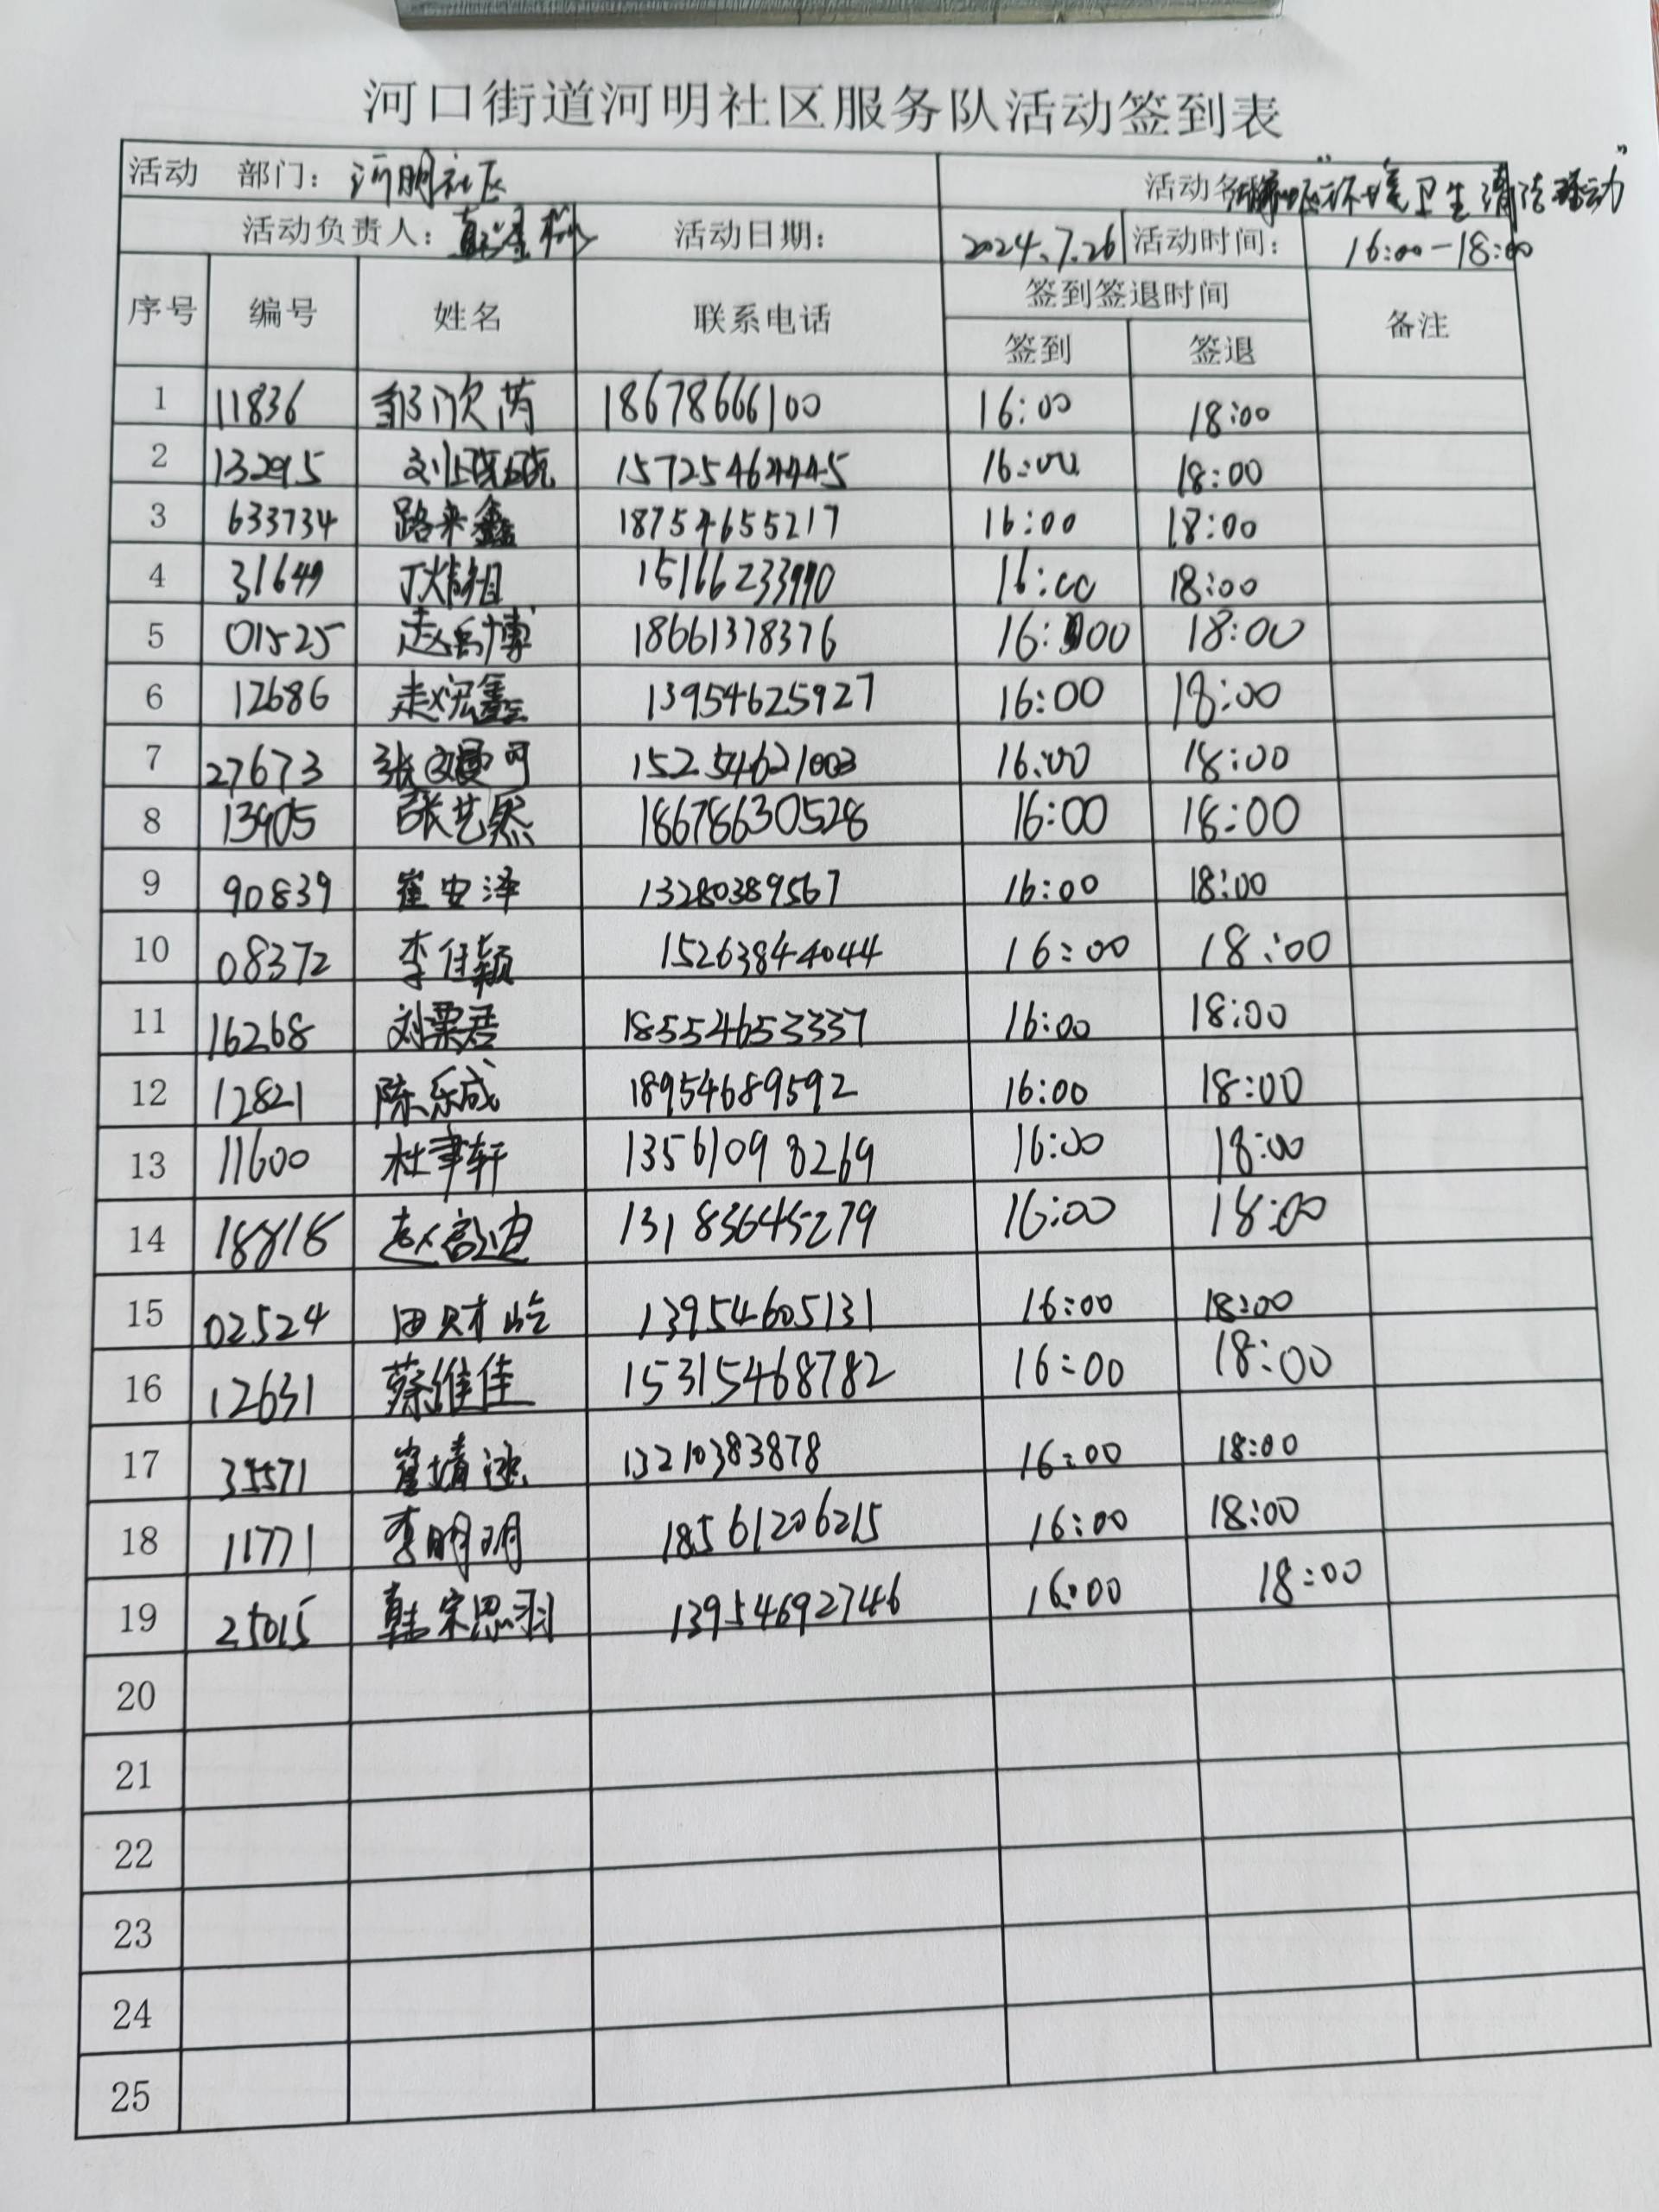 河口街道河明社区服务队活动签到表
活动 部门: 河明社区 活动名称: 环境卫生清洁活动"
活动负责人: 活动日期: 2024.7.26 活动时间: 16:00-18:00
序号 编号 姓名 联系电话 签到签退时间 备注
签到 签退
1 11836 欣芮 18678666100 16:00 18:00
2 13295 刘晓晓 15725464445 16:00 18:00
3 633734 路来鑫 18754655217 16:00 18:00
4 31649 丁 15166233990 16:00 18:00
5 01525 赵岳博 18661378376 16:00 18:00
6 12686 赵宏鑫 13954625927 16:00 18:00
7 27673 张 可 15254621003 16:00 18:00
8 13905 张艺然 18678630528 16:00 18:00
9 90839 崔安泽 13280389567 16:00 18:00
10 08372 李佳颖 15263844044 16:00 18:00
11 16268 刘栗君 18554653337 16:00 18:00
12 12821 陈乐成 18954689592 16:00 18:00
13 11600 杜聿轩 13561098269 16:00 18:00
14 18818 赵 迪 13183645279 16:00 18:00
15 02524 田财屹 13954605131 16:00 18:00
16 12631 蔡维佳 15315468782 16:00 18:00
17 35571 崔靖 13210383878 16:00 18:00
18 11771 李明玥 18561206215 16:00 18:00
19 25015 韩宋思羽 13954692746 16:00 18:00
20
21
22
23
24
25